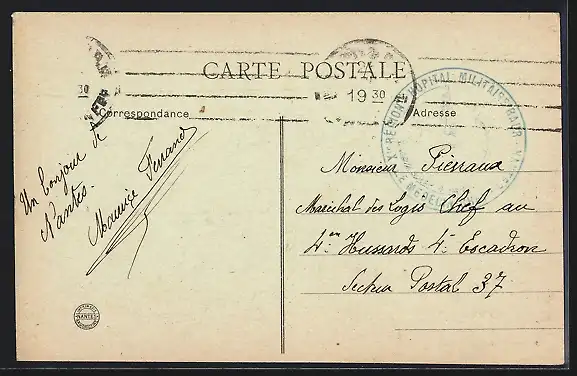 CARTE POSTALE
19 30
Correspondance
Adresse
HOPITAL MILITAIRE
Un bonjour de
Nantes.
Maurice Ferrand
Monsieur Pierraux
Maréchal des Logis Chef au
4en Hussards 4e Escadron
Secteur Postal 37
NANTES